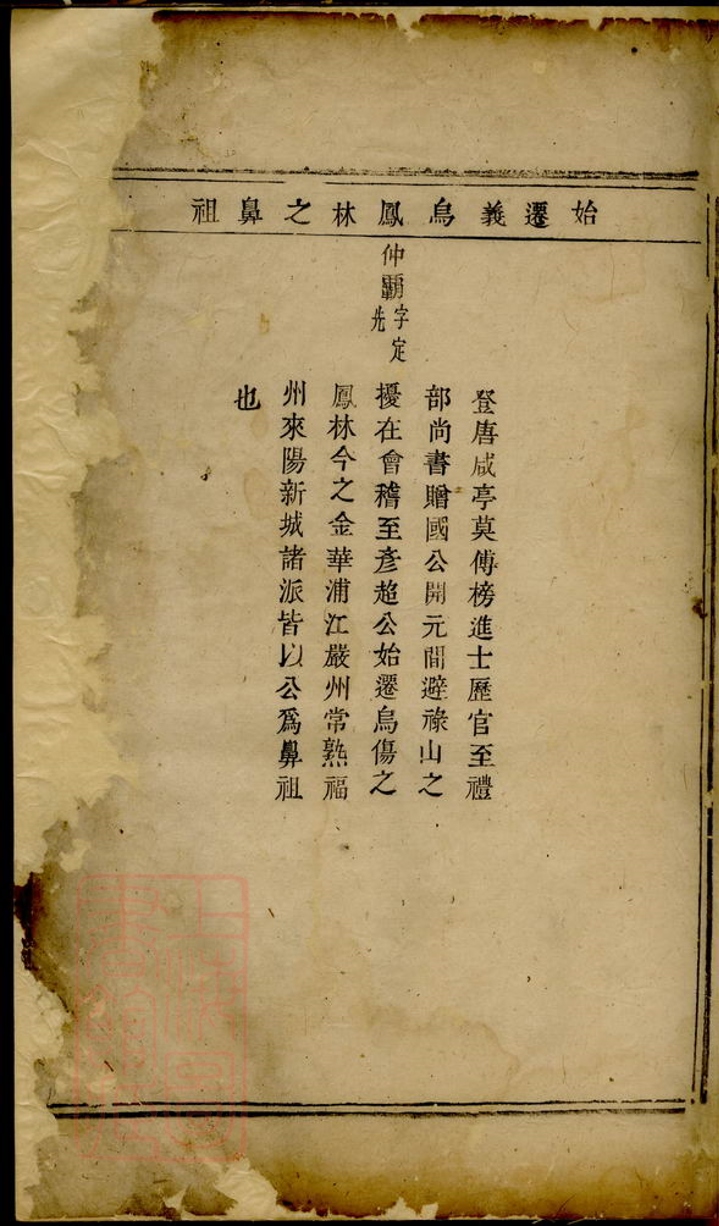 始遷義烏鳳林之鼻祖
仲霸字定先
登唐咸亨莫傅榜進士歷官至禮
部尚書贈國公開元間避祿山之
擾在會稽至彥超公始遷烏傷之
鳳林今之金華浦江嚴州常熟福
州來陽新城諸派皆以公爲鼻祖
也